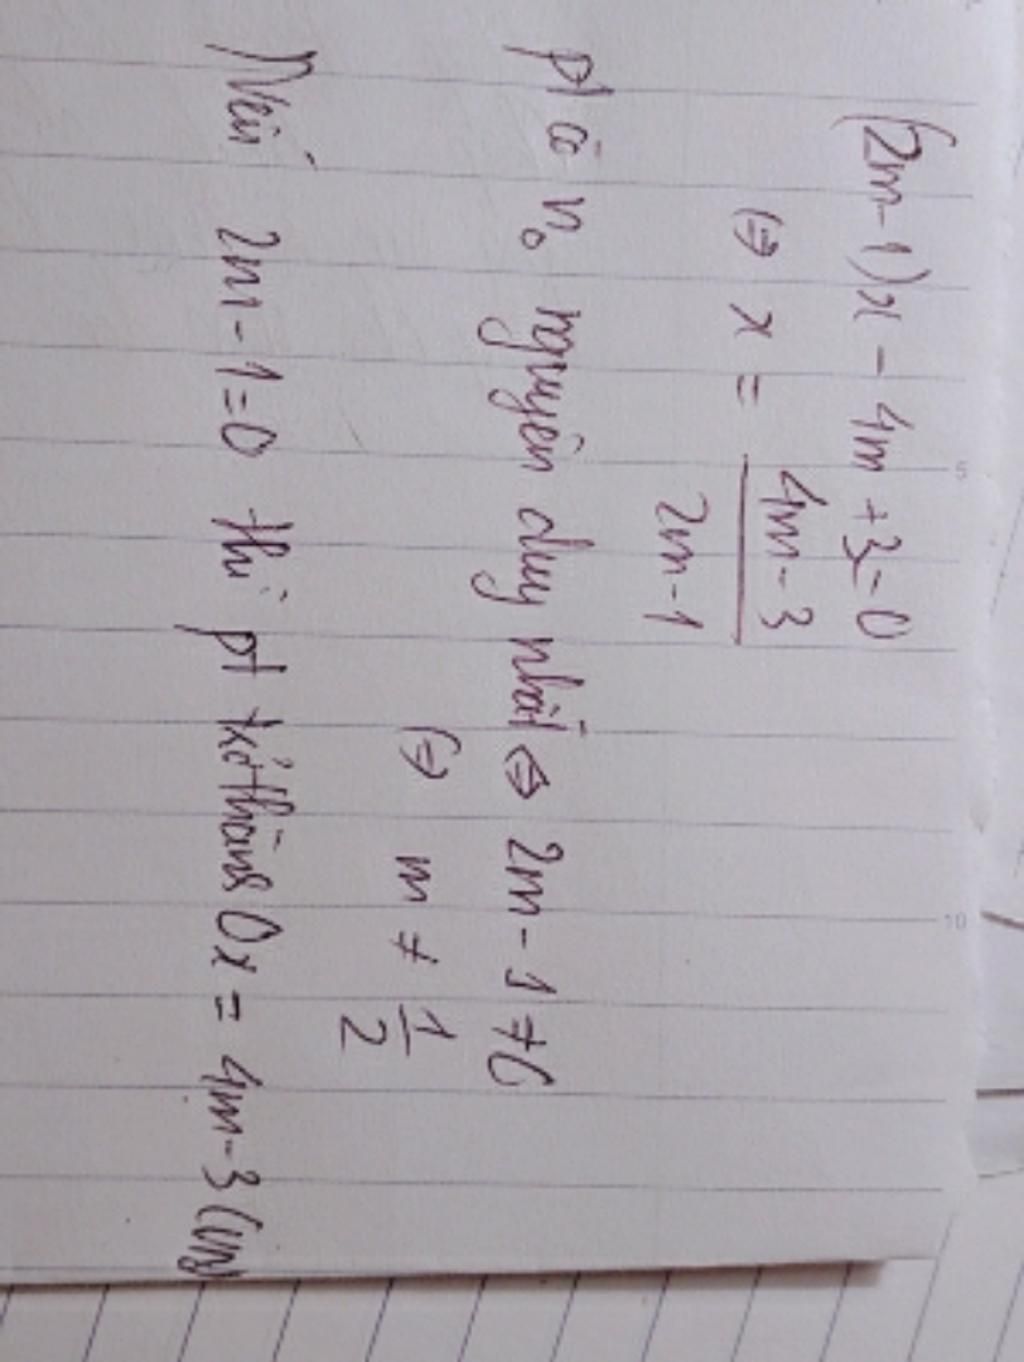 (2m-1)x - 4m + 3 = 0
(=) x = \frac{4m-3}{2m-1}
pt có n₀ nguyên duy nhất ⇔ 2m - 1 ≠ 0
(=) m ≠ \frac{1}{2}
Nếu 2m - 1 = 0 thì pt trở thành 0x = 4m - 3
5
10